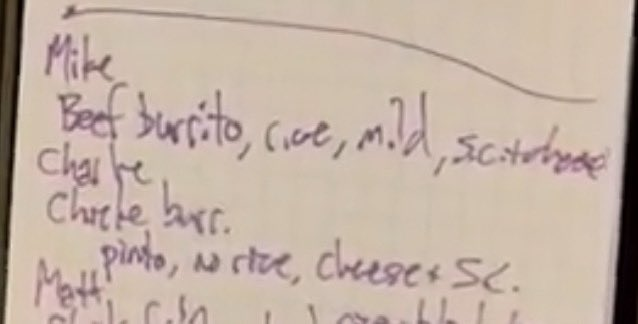 Mike
Beef burrito, rice, mild, s.c. + cheese
Charlie
Chicke burr.
pinto, no rice, cheese + SC.
Matt